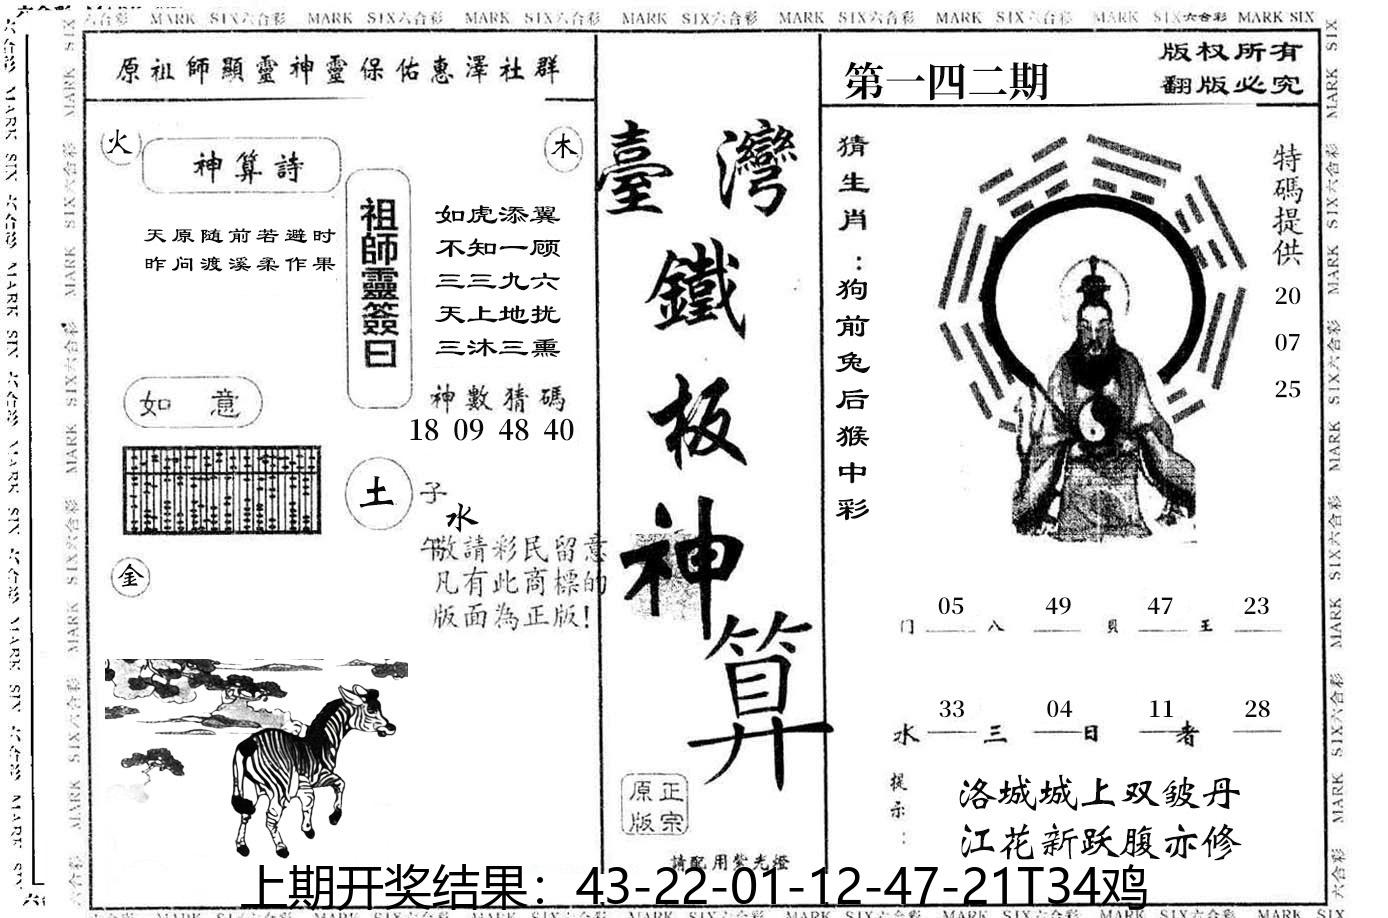 MARK SIX六合彩 MARK SIX六合彩 MARK SIX六合彩 MARK SIX六合彩 MARK SIX六合彩 MARK SIX六合彩 MARK SIX六合彩 MARK SIX
原祖師顯靈神靈保佑惠澤社群
火
木
神算詩
天原随前若避时
昨问渡溪柔作果
祖師靈簽曰
如虎添翼
不知一顾
三三九六
天上地扰
三沐三熏
如意
神數猜碼
18 09 48 40
土
子
水
午
金
敬請彩民留意
凡有此商標的
版面為正版!
臺灣
鐵
板
神
算
正宗
原版
請配用紫光燈
第一四二期
版权所有
翻版必究
猜生肖:狗前兔后猴中彩
特碼提供
20
07
25
05 49 47 23
门 八 貝 王
33 04 11 28
水 三 日 者
提示:
洛城城上双皱丹
江花新跃腹亦修
上期开奖结果：43-22-01-12-47-21T34鸡